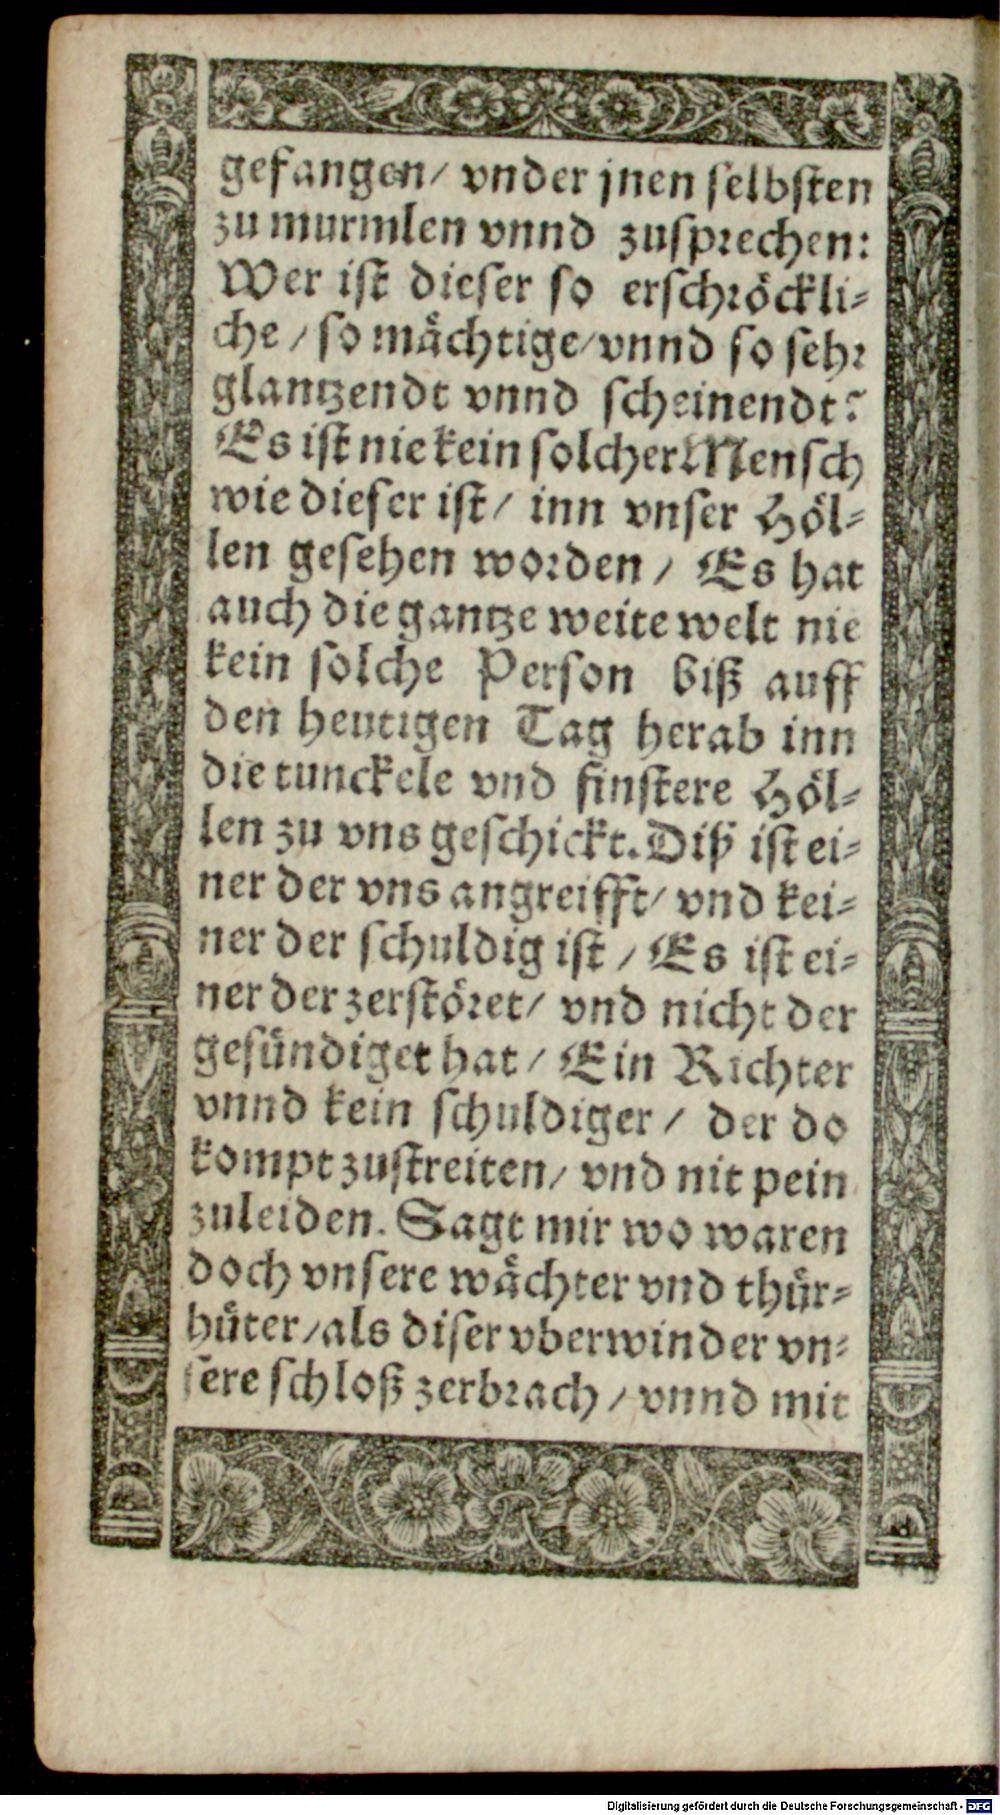 gefangen/ vnder jnen selbsten
zu murmlen vnnd zusprechen:
Wer ist dieser so erschröckli-
che / so mächtige/ vnnd so sehr
glantzendt vnnd scheinendt?
Es ist nie kein solcher Mensch
wie dieser ist/ inn vnser Höl-
len gesehen worden / Es hat
auch die gantze weite welt nie
kein solche Person biß auff
den heutigen Tag herab inn
die tunckele vnd finstere Höl-
len zu vns geschickt. Diß ist ei-
ner der vns angreifft/ vnd kei-
ner der schuldig ist / Es ist ei-
ner der zerstöret/ vnd nicht der
gesündiget hat / Ein Richter
vnnd kein schuldiger / der do
kompt zustreiten/ vnd nit pein
zuleiden. Sagt mir wo waren
doch vnsere wächter vnd thür-
hüter/ als diser vberwinder vn-
sere schloß zerbrach / vnnd mit
Digitalisierung gefördert durch die Deutsche Forschungsgemeinschaft - DFG